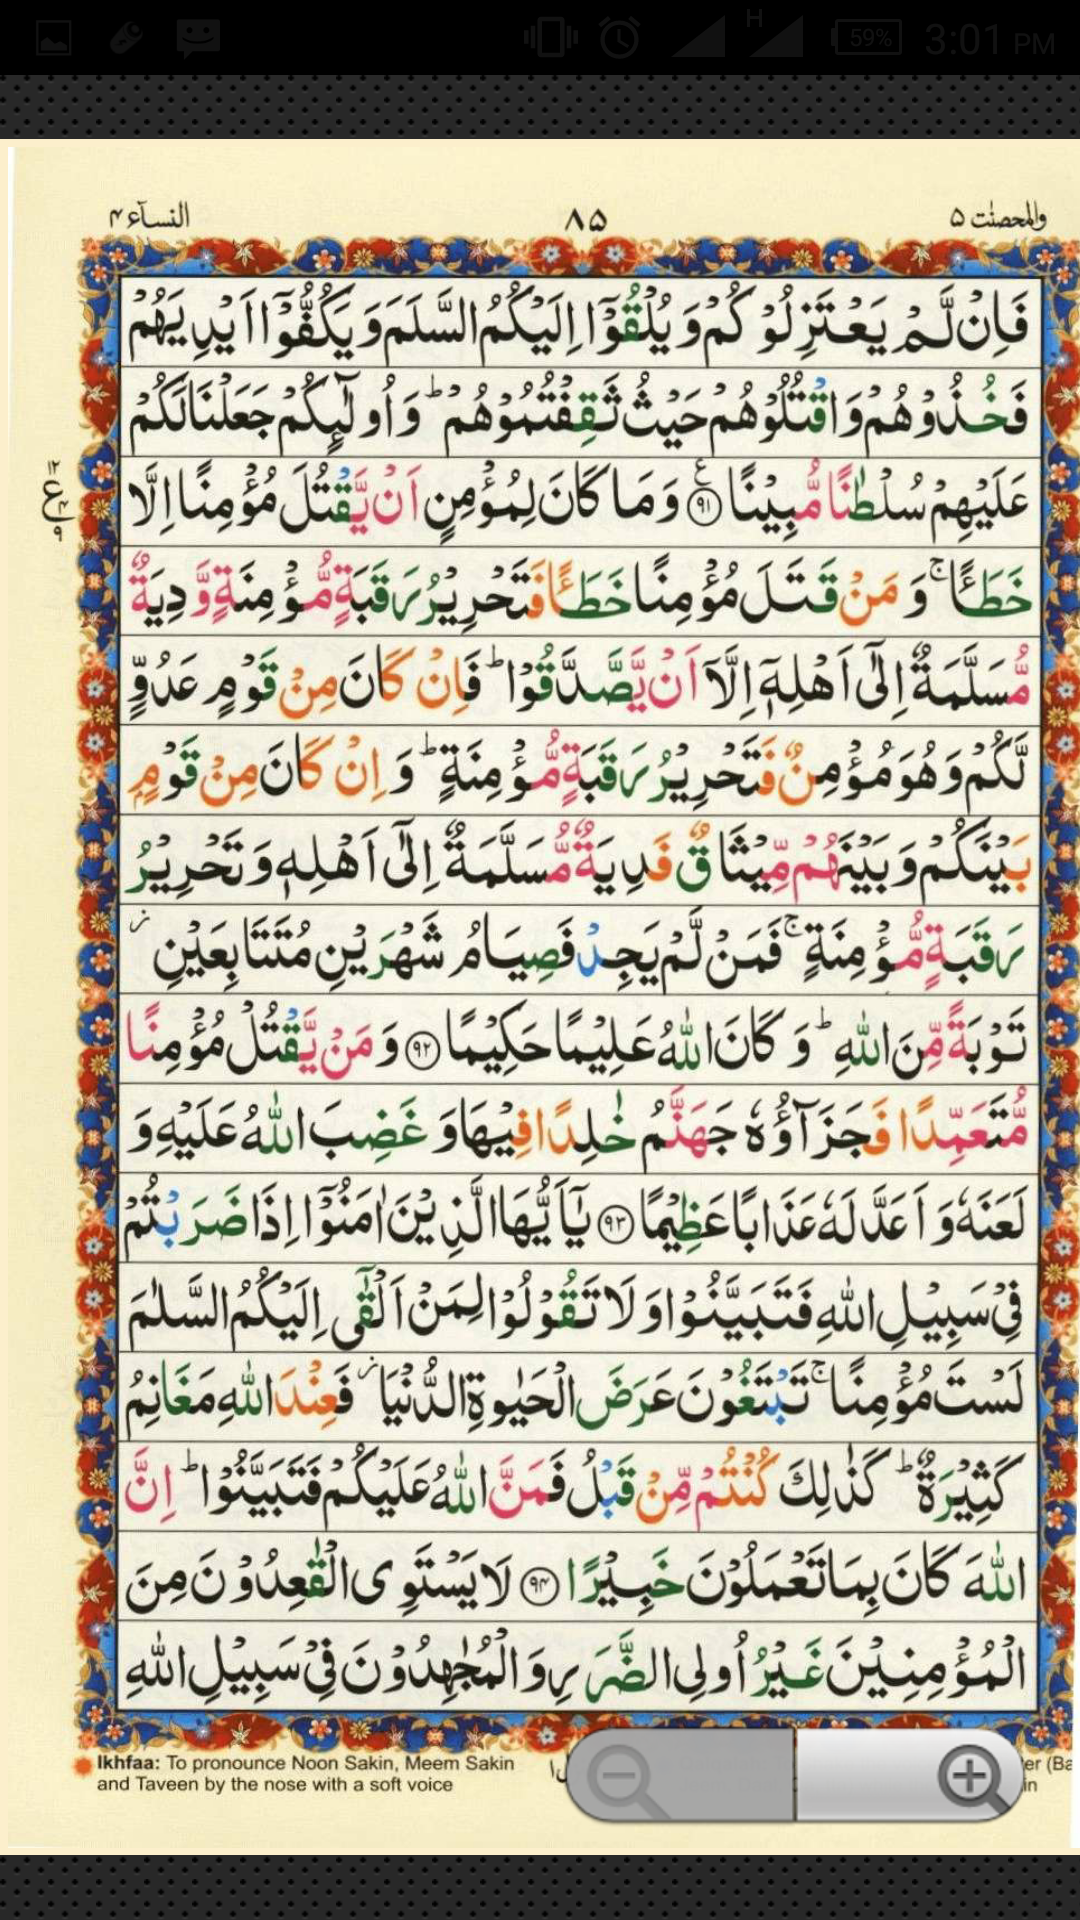 H
59%
3:01 PM
النسآء ۴
۸۵
والمحصنٰت ۵
فَاِنْ لَّمْ يَعْتَزِلُوْكُمْ وَيُلْقُوْٓا اِلَيْكُمُ السَّلَمَ وَيَكُفُّوْٓا اَيْدِيَهُمْ
فَخُذُوْهُمْ وَاقْتُلُوْهُمْ حَيْثُ ثَقِفْتُمُوْهُمْ ؕ وَاُولٰٓئِكُمْ جَعَلْنَا لَكُمْ
عَلَيْهِمْ سُلْطٰنًا مُّبِيْنًا ﴿۹۱﴾ وَمَا كَانَ لِمُؤْمِنٍ اَنْ يَّقْتُلَ مُؤْمِنًا اِلَّا
۱۲
ع
۴
۹
خَطَـًٔا ۚ وَمَنْ قَتَلَ مُؤْمِنًا خَطَـًٔا فَتَحْرِيْرُ رَقَبَةٍ مُّؤْمِنَةٍ وَّدِيَةٌ
مُّسَلَّمَةٌ اِلٰٓى اَهْلِهٖٓ اِلَّآ اَنْ يَّصَّدَّقُوْا ؕ فَاِنْ كَانَ مِنْ قَوْمٍ عَدُوٍّ
لَّكُمْ وَهُوَ مُؤْمِنٌ فَتَحْرِيْرُ رَقَبَةٍ مُّؤْمِنَةٍ ؕ وَاِنْ كَانَ مِنْ قَوْمٍۭ
بَيْنَكُمْ وَبَيْنَهُمْ مِّيْثَاقٌ فَدِيَةٌ مُّسَلَّمَةٌ اِلٰٓى اَهْلِهٖ وَتَحْرِيْرُ
رَقَبَةٍ مُّؤْمِنَةٍ ۚ فَمَنْ لَّمْ يَجِدْ فَصِيَامُ شَهْرَيْنِ مُتَتَابِعَيْنِ ز
تَوْبَةً مِّنَ اللّٰهِ ؕ وَكَانَ اللّٰهُ عَلِيْمًا حَكِيْمًا ﴿۹۲﴾ وَمَنْ يَّقْتُلْ مُؤْمِنًا
مُّتَعَمِّدًا فَجَزَآؤُهٗ جَهَنَّمُ خٰلِدًا فِيْهَا وَغَضِبَ اللّٰهُ عَلَيْهِ وَ
لَعَنَهٗ وَاَعَدَّ لَهٗ عَذَابًا عَظِيْمًا ﴿۹۳﴾ يٰٓاَيُّهَا الَّذِيْنَ اٰمَنُوْٓا اِذَا ضَرَبْتُمْ
فِيْ سَبِيْلِ اللّٰهِ فَتَبَيَّنُوْا وَلَا تَقُوْلُوْا لِمَنْ اَلْقٰٓى اِلَيْكُمُ السَّلٰمَ
لَسْتَ مُؤْمِنًا ۚ تَبْتَغُوْنَ عَرَضَ الْحَيٰوةِ الدُّنْيَا ز فَعِنْدَ اللّٰهِ مَغَانِمُ
كَثِيْرَةٌ ؕ كَذٰلِكَ كُنْتُمْ مِّنْ قَبْلُ فَمَنَّ اللّٰهُ عَلَيْكُمْ فَتَبَيَّنُوْا ؕ اِنَّ
اللّٰهَ كَانَ بِمَا تَعْمَلُوْنَ خَبِيْرًا ﴿۹۴﴾ لَا يَسْتَوِي الْقٰعِدُوْنَ مِنَ
الْمُؤْمِنِيْنَ غَيْرُ اُولِي الضَّرَرِ وَالْمُجٰهِدُوْنَ فِيْ سَبِيْلِ اللّٰهِ
Ikhfaa: To pronounce Noon Sakin, Meem Sakin
and Taveen by the nose with a soft voice